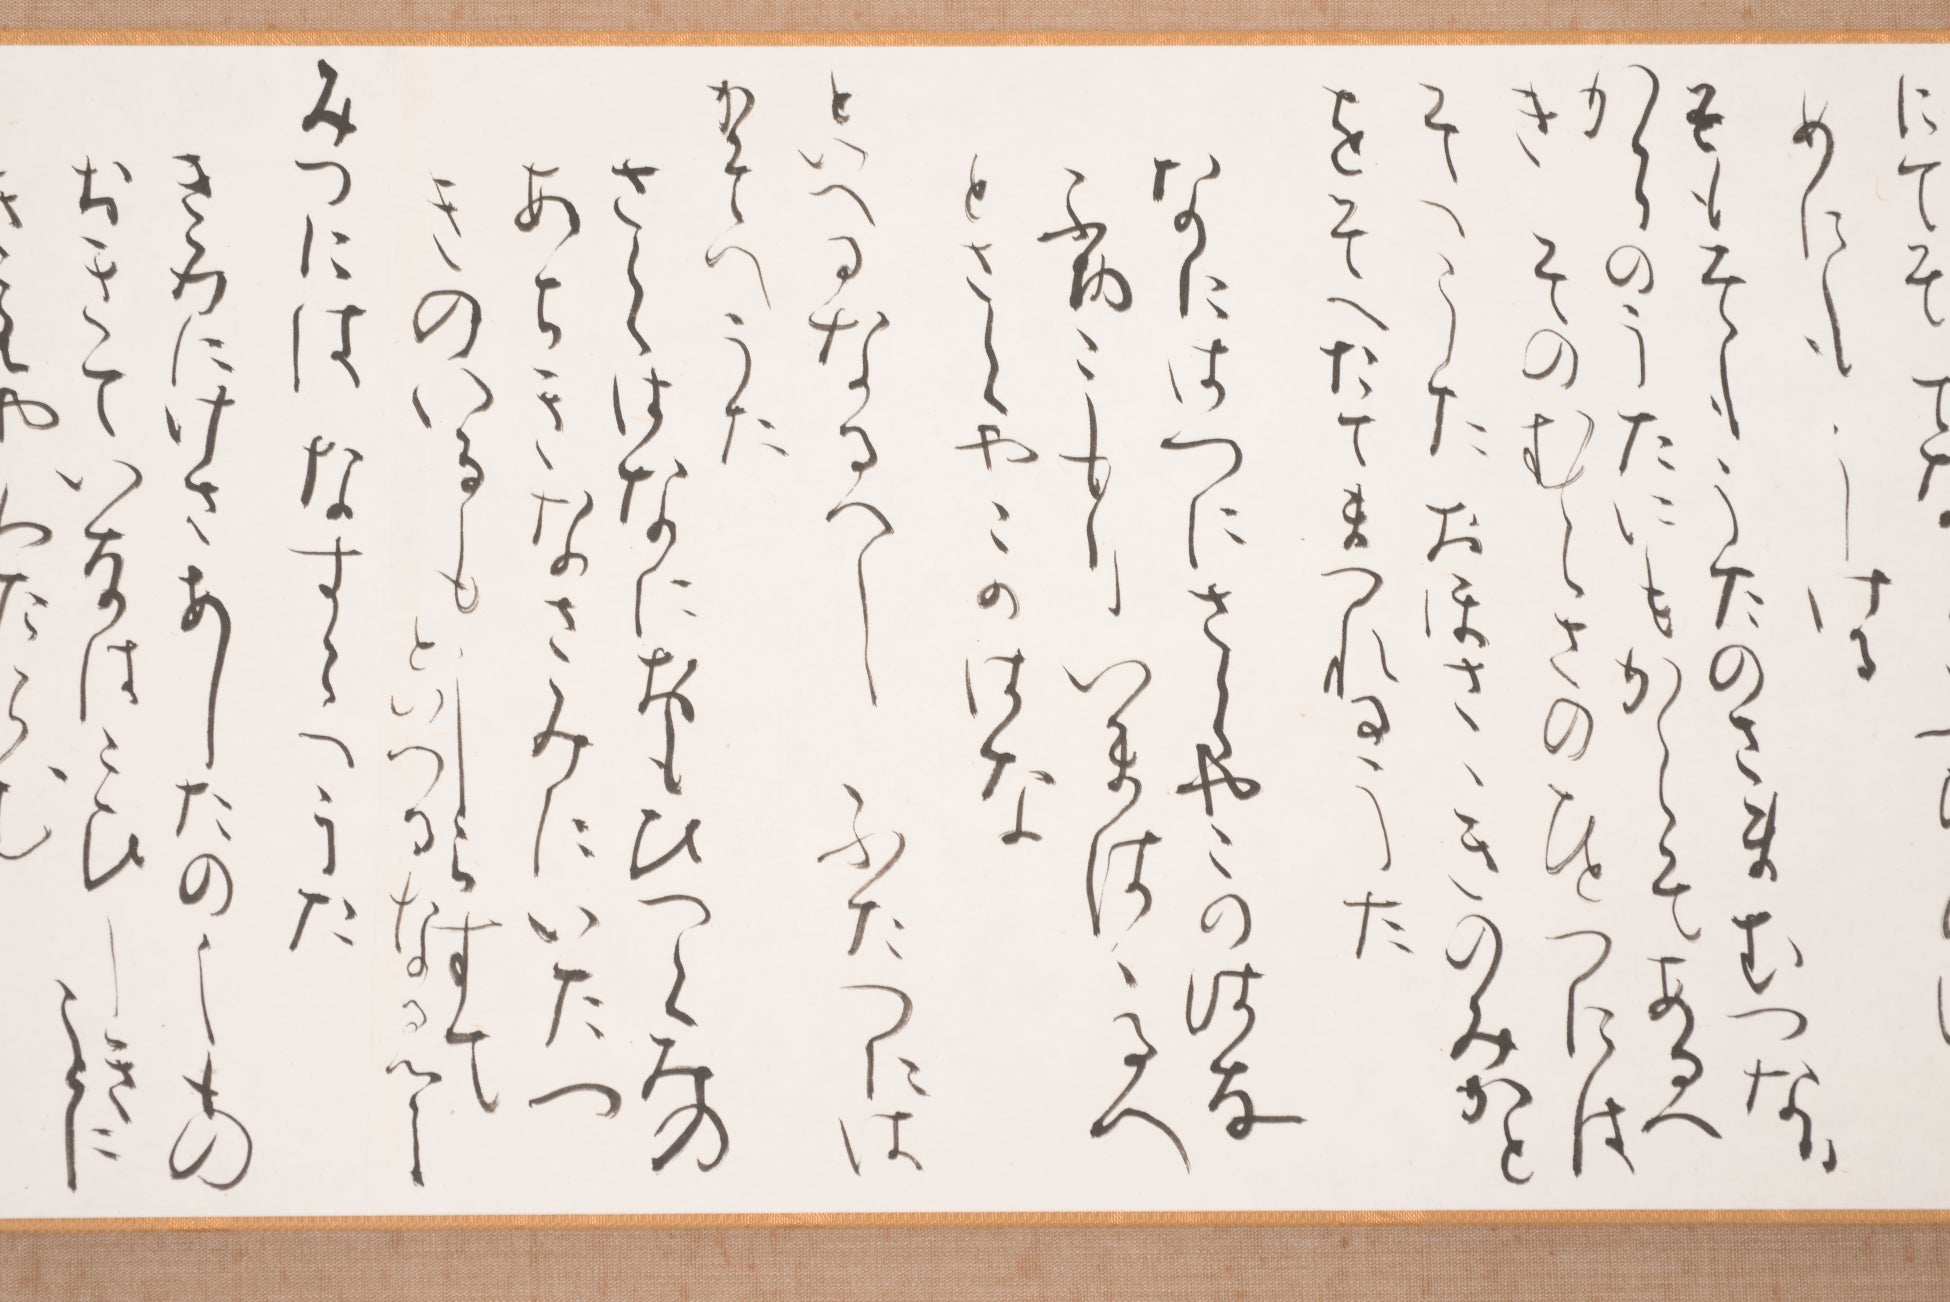 にてそてな
めにもしける
そも〱うたのさまむつなり
からのうたにもかくそあるへ
き そのむくさのひとつには
そへうた おほさゝきのみかと
をそへたてまつれるうた
なにはつにさくやこのはな
ふゆこもり いまははるへ
とさくやこのはな
といへるなるへし ふたつには
かそへうた
さくはなにおもひつくみの
あちきなさみにいたつ
きのいるもしらすて
といへるなるへし
みつには なすらへうた
きみにけさあしたのしもの
おきていなはこひしきに